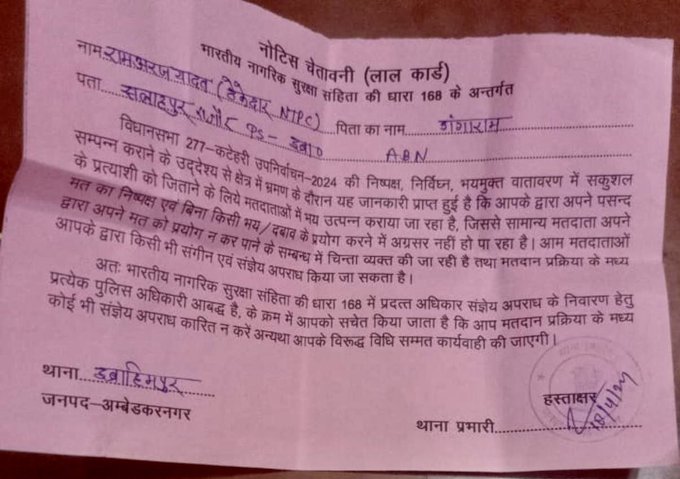 नोटिस चेतावनी (लाल कार्ड)
भारतीय नागरिक सुरक्षा संहिता की धारा 168 के अन्तर्गत
नाम रामअरज यादव (ठेकेदार NTPC) पिता का नाम गंगाराम
पता सलाहपुर PS- ABN
विधानसभा 277-कटेहरी उपनिर्वाचन-2024 की निष्पक्ष, निर्विघ्न, भयमुक्त वातावरण में सकुशल
सम्पन्न कराने के उद्देश्य से क्षेत्र में भ्रमण के दौरान यह जानकारी प्राप्त हुई है कि आपके द्वारा अपने पसन्द
के प्रत्याशी को जिताने के लिये मतदाताओं में भय उत्पन्न कराया जा रहा है, जिससे सामान्य मतदाता अपने
मत का निष्पक्ष एवं बिना किसी भय/दबाव के प्रयोग करने में अग्रसर नहीं हो पा रहा है। आम मतदाताओं
द्वारा अपने मत को प्रयोग न कर पाने के सम्बन्ध में चिन्ता व्यक्त की जा रही है तथा मतदान प्रक्रिया के मध्य
आपके द्वारा किसी भी संगीन एवं संज्ञेय अपराध किया जा सकता है।
अतः भारतीय नागरिक सुरक्षा संहिता की धारा 168 में प्रदत्त अधिकार संज्ञेय अपराध के निवारण हेतु
प्रत्येक पुलिस अधिकारी आबद्ध है, के क्रम में आपको सचेत किया जाता है कि आप मतदान प्रक्रिया के मध्य
कोई भी संज्ञेय अपराध कारित न करें अन्यथा आपके विरूद्ध विधि सम्मत कार्यवाही की जाएगी।
थाना इब्राहिमपुर
जनपद-अम्बेडकरनगर
हस्ताक्षर
थाना प्रभारी